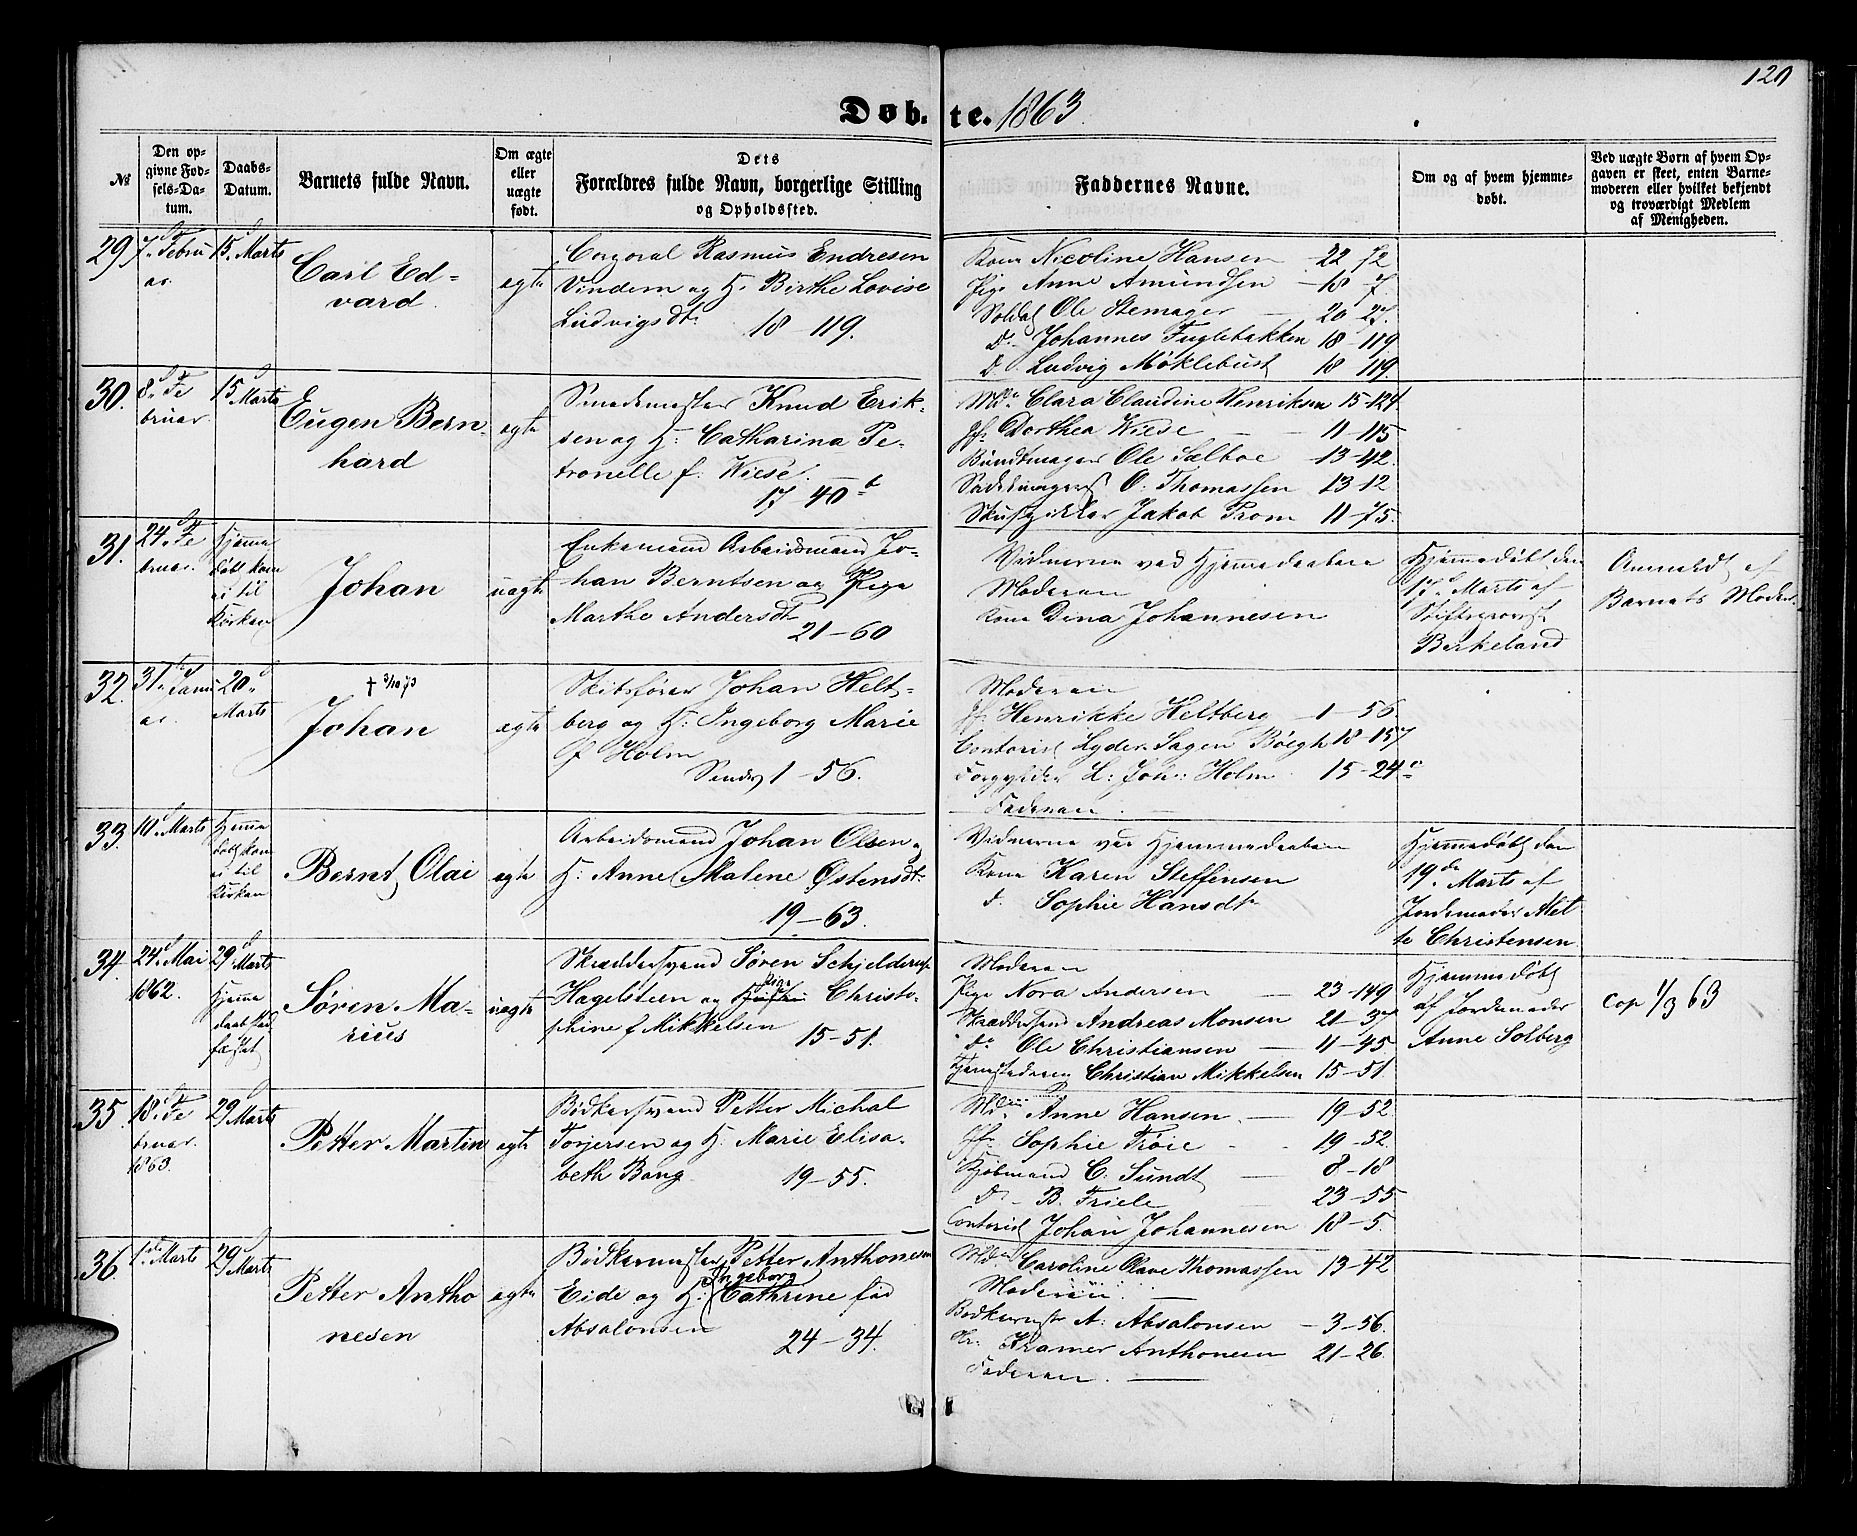 120
Døbte. 1863.
№
Den op-
givne Fød-
sels-Da-
tum.
Daabs-
Datum.
Barnets fulde Navn.
Om ægte
eller
uægte
født.
Dets
Forældres fulde Navn, borgerlige Stilling
og Opholdssted.
Faddernes Navne.
Om og af hvem hjemme-
døbt.
Ved uægte Børn af hvem Op-
gaven er skeet, enten Barne-
moderen eller hvilket bekjendt
og troværdigt Medlem
af Menigheden.
29
7de Febru
ar.
15. Marts
Carl Ed-
vard.
egte
Corporal Rasmus Endresen
Vindern og H. Birthe Lovise
Ludvigsdtr 18 - 119.
Kone Nicoline Hansen - 22 72
Pige Anne Amundsen - 18 - 7
Soldat Ole Stemager - 20 27.
do Johannes Fuglebakken 18 - 119
do Ludvig Møklebust 18 119.
30.
8de Fe
bruar.
15 Marts
Eugen Bern-
hard
egte
Smedemester Knud Erik-
sen og H: Catharina Pe-
tronelle f. Wiese.
17 - 40 b
Md Clara Claudine Henriksen 15-124
Jfr Dorthea Wiese - - 11-115
Bundtmager Ole Sælboe - 13-42.
O. Thomassen 13-12
Jakob From 11-75.
31.
24de Fe
bruar.
Hjemme
døbt kom
ei til
Kirken
Johan
uegte
Enkemand Arbeidsmand Jo-
han Berntsen og Pige
Marthe Andersdtr
21-60
Vidnerne ved Hjemmedaaben
Moderen
Kone Dina Johannesen
Hjemmedøbt den
Marts af
Stiftsprovst
Berkeland
Anmeldt af
Barnets Moder.
32.
31te Janu
ar.
20de
Marts
† 3/10 73
Johan
egte
Skibsfører Johan Helt-
berg og H: Ingeborg Marie
f Holm
1-56.
Moderen
Jfr Henrikke Heltberg - 1-56.
Contorist Lyder Sagen Bøegh 18-157
L: Joh: Holm 15-24
Faderen. -
33.
10de Marts
Hjemme
døbt kom
ei til
Kirken
Bernt Olai
egte
Arbeidsmand Johan Olsen og
H: Anne Malene Østensdtr
19-63.
Vidnerne ved Hjemmedaaben
Kone Karen Steffensen
do Sophie Hansdtr
Hjemmedøbt den
19de Marts af
Jordemoder Alet
te Christensen
34.
24de Mai
1862.
29de Marts
Hjemme
daab stad
fæstet
Søren Ma-
rius
uegte
Skræddersvend Søren Schjelderup
Hagelsteen og Pige Christo-
phine f Mikkelsen
15-51.
Moderen
Pige Nora Andersen - 23-149
Skræddersvend Andreas Monsen 21-3
do Ole Christiansen - 11-45.
Christian Mikkelsen 15-51.
Hjemmedøbt
af Jordemoder
Anne Solberg
Cop 1/3 63
35.
18de Fe
bruar.
1863.
29 Marts
Petter Martin
egte
Bødkersvend Petter Michal
Torjersen og H. Marie Elisa-
beth Bang.
19-55.
Md Anne Hansen. - 19-52.
Jfr Sophie Trøie - 19-52.
Kjøbmand C. Sundt - 8-18
do - B. Friele - 23-55
Contorist Johan Johannesen 18-5.
36.
1ste Marts
29de Marts
Petter Antho
nesen
egte
Bødkermester Petter Anthonesen
Eide og H: Ingeborg Cathrine fød
Absalonsen
24-34.
Md Caroline Olave Thomassen 13-42
Moderen. -
Bødkermstr A. Absalonsen - 3-56.
Hr. Kramer Anthonesen 21-26.
Faderen. -